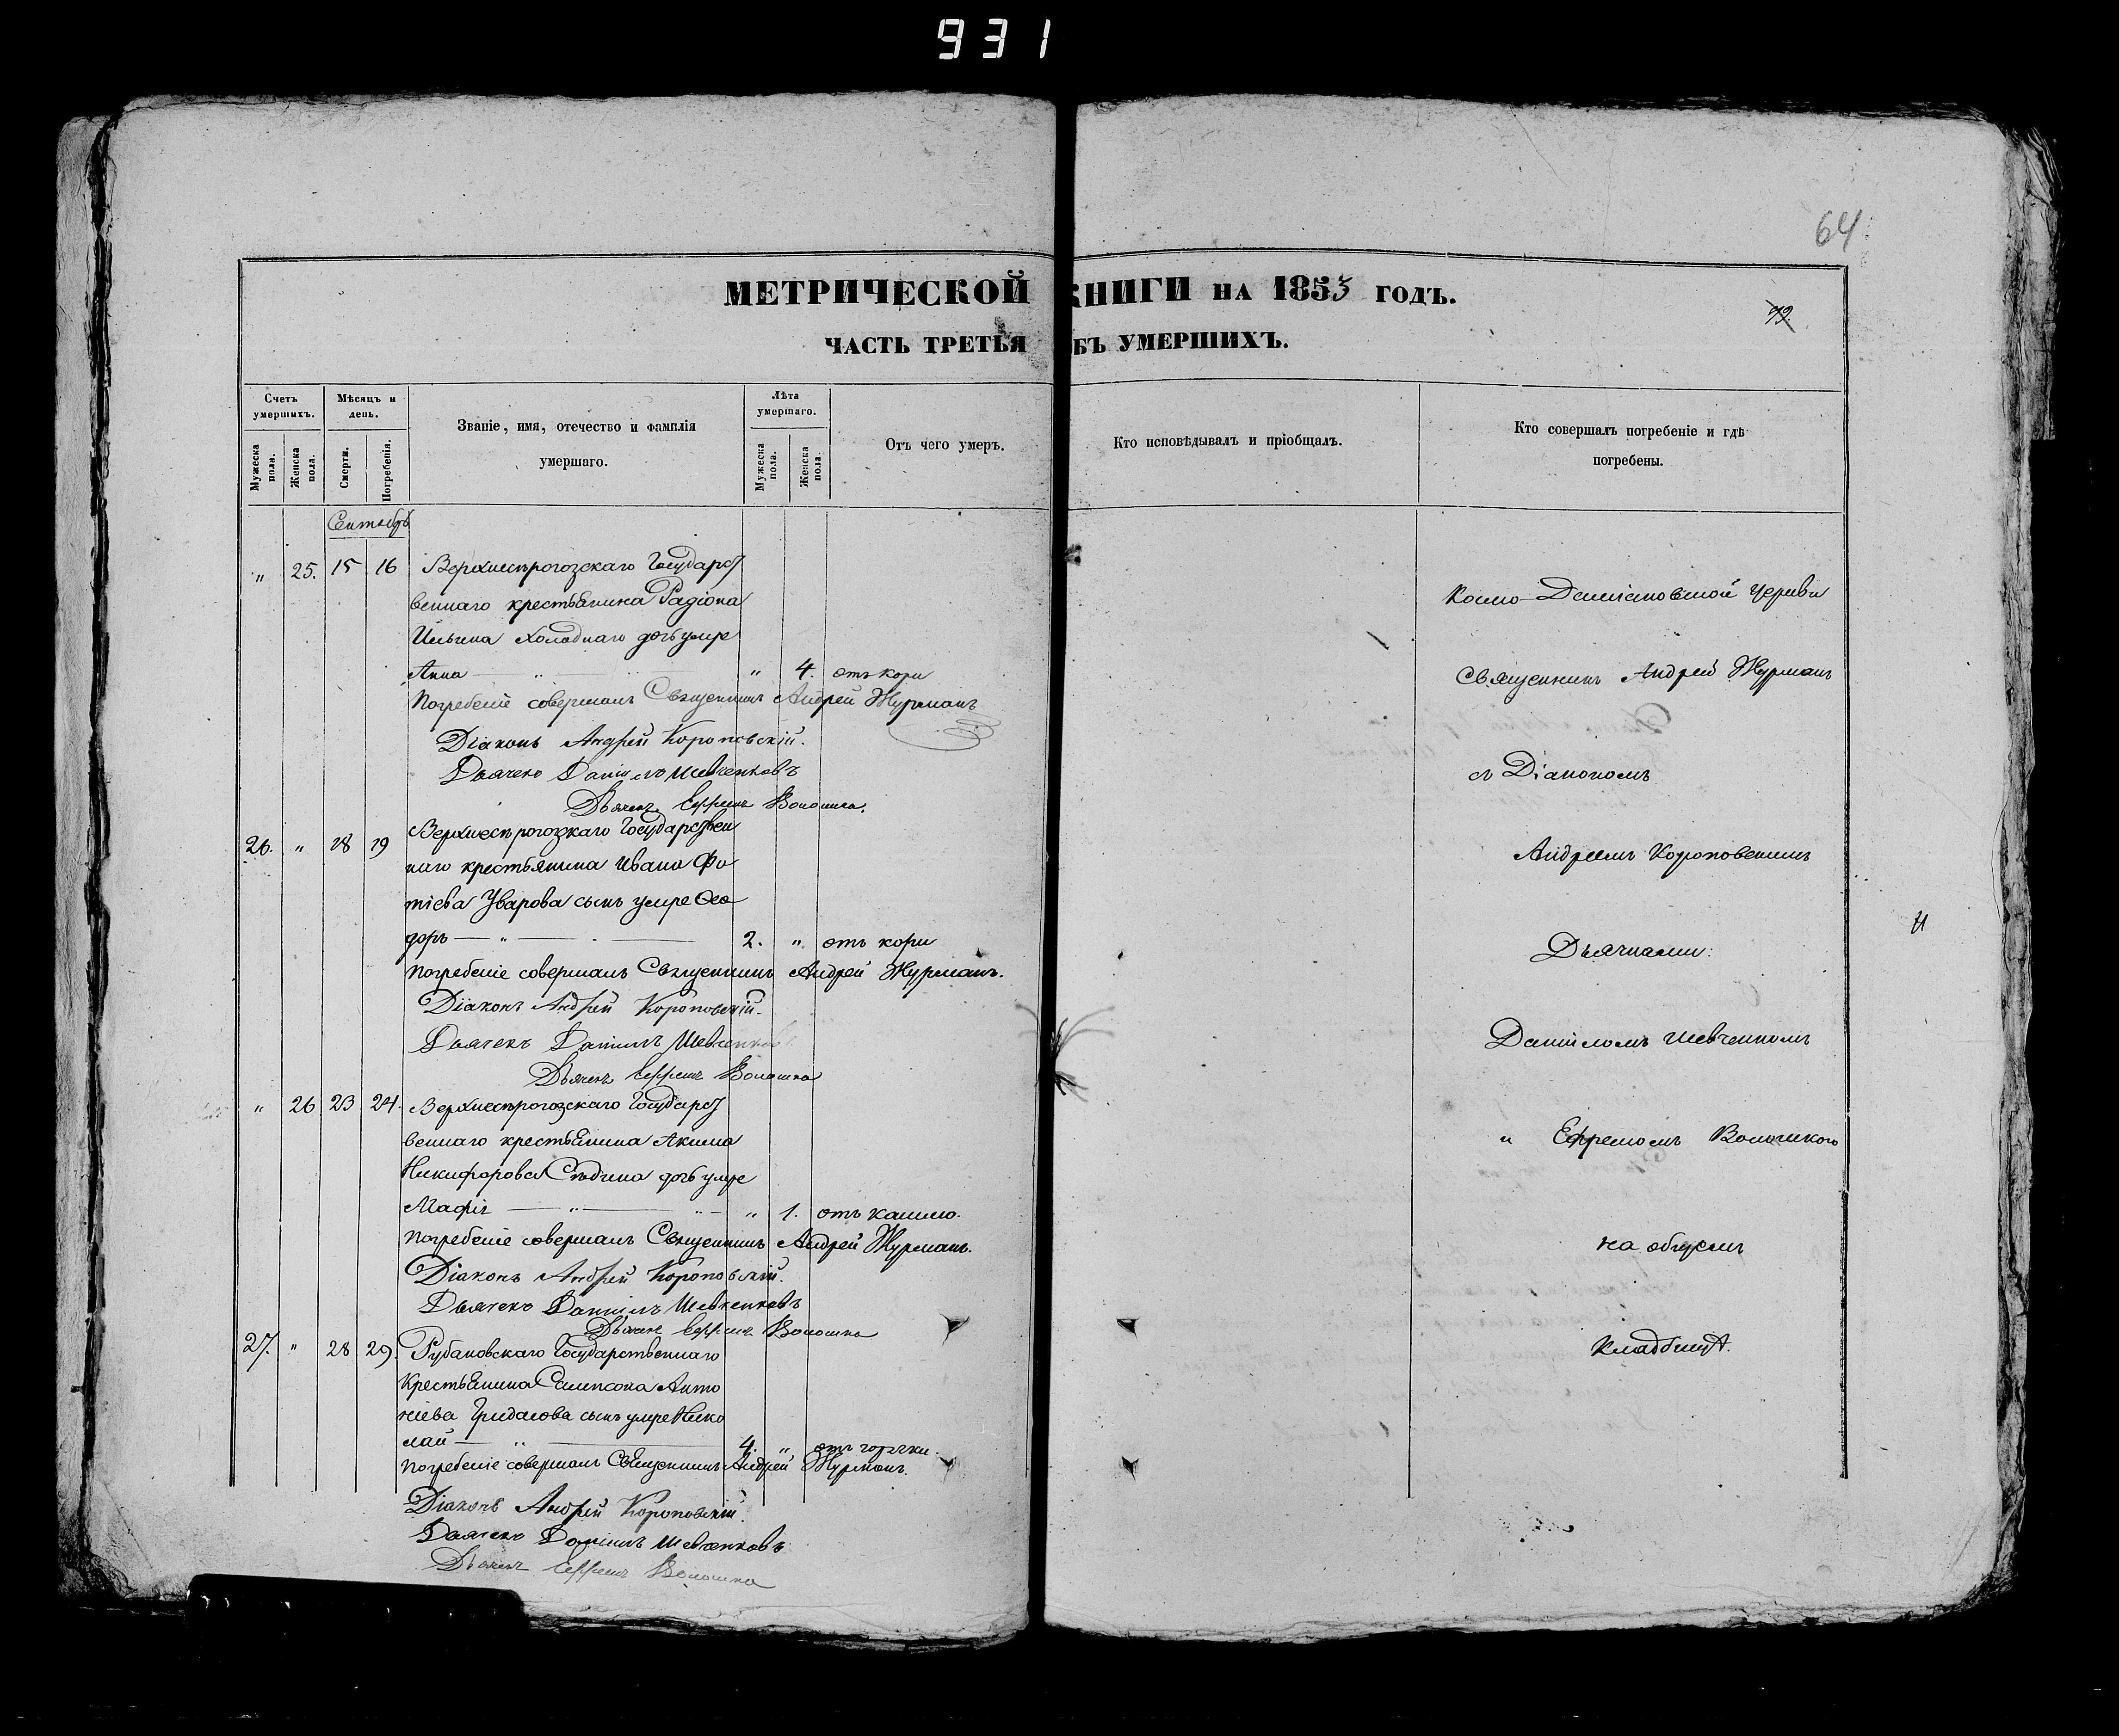 931
64
МЕТРИЧЕСКОЙ КНИГИ НА 1853 ГОДЪ.
ЧАСТЬ ТРЕТЬЯ ОБЪ УМЕРШИХЪ.
Счетъ умершихъ.
Мужеска пола.
Женска пола.
Мѣсяцъ и день.
Смерти.
Погребенія.
Званіе, имя, отечество и фамилія
умершаго.
Лѣта умершаго.
Мужеска пола.
Женска пола.
Отъ чего умеръ.
Кто исповѣдывалъ и пріобщалъ.
Кто совершалъ погребеніе и гдѣ
погребены.
Сентябрь
" 25. 15 16 Верхнерогозскаго Государст
веннаго крестьянина Радіона
Ильина Холоднаго дочь умре
Анна " 4. отъ кори
Погребеніе совершалъ Священникъ Андрей Журманъ
Діаконъ Андрей Короповскій.
Дьячекъ Даніилъ Шевченковъ
Дьячекъ Ефремъ Волошка.
26. " 18 19 Верхнерогозскаго Государствен
наго крестьянина Ивана Фо
тіева Уварова сынъ умре Ѳео
доръ 2. " отъ кори
Погребеніе совершалъ Священникъ Андрей Журманъ.
Діаконъ Андрей Короповскій.
Дьячекъ Даніилъ Шевченковъ
Дьячекъ Ефремъ Волошка
" 26 23 24. Верхнерогозскаго Государст
веннаго крестьянина Акима
Никифорова дочь умре
" 1. отъ кашлю.
Погребеніе совершалъ Священникъ Андрей Журманъ.
Діаконъ Андрей Короповскій.
Дьячекъ Даніилъ Шевченковъ
Дьячекъ Ефремъ Волошка
27. " 28 29. Рубановскаго Государственнаго
крестьянина Сампсона Анто
ніева Гридасова сынъ умре Нико
лай 4. " отъ горячки.
Погребеніе совершалъ Священникъ Андрей Журманъ.
Діаконъ Андрей Короповскій.
Дьячекъ Даніилъ Шевченковъ
Дьячекъ Ефремъ Волошка
Космо-Даміановской Церкви
Священникъ Андрей Журманъ
съ Діакономъ
Андреемъ Короповскимъ
Дьячками:
Даніиломъ Шевченкомъ
и Ефремомъ Волошкою
на общемъ
кладбищѣ.